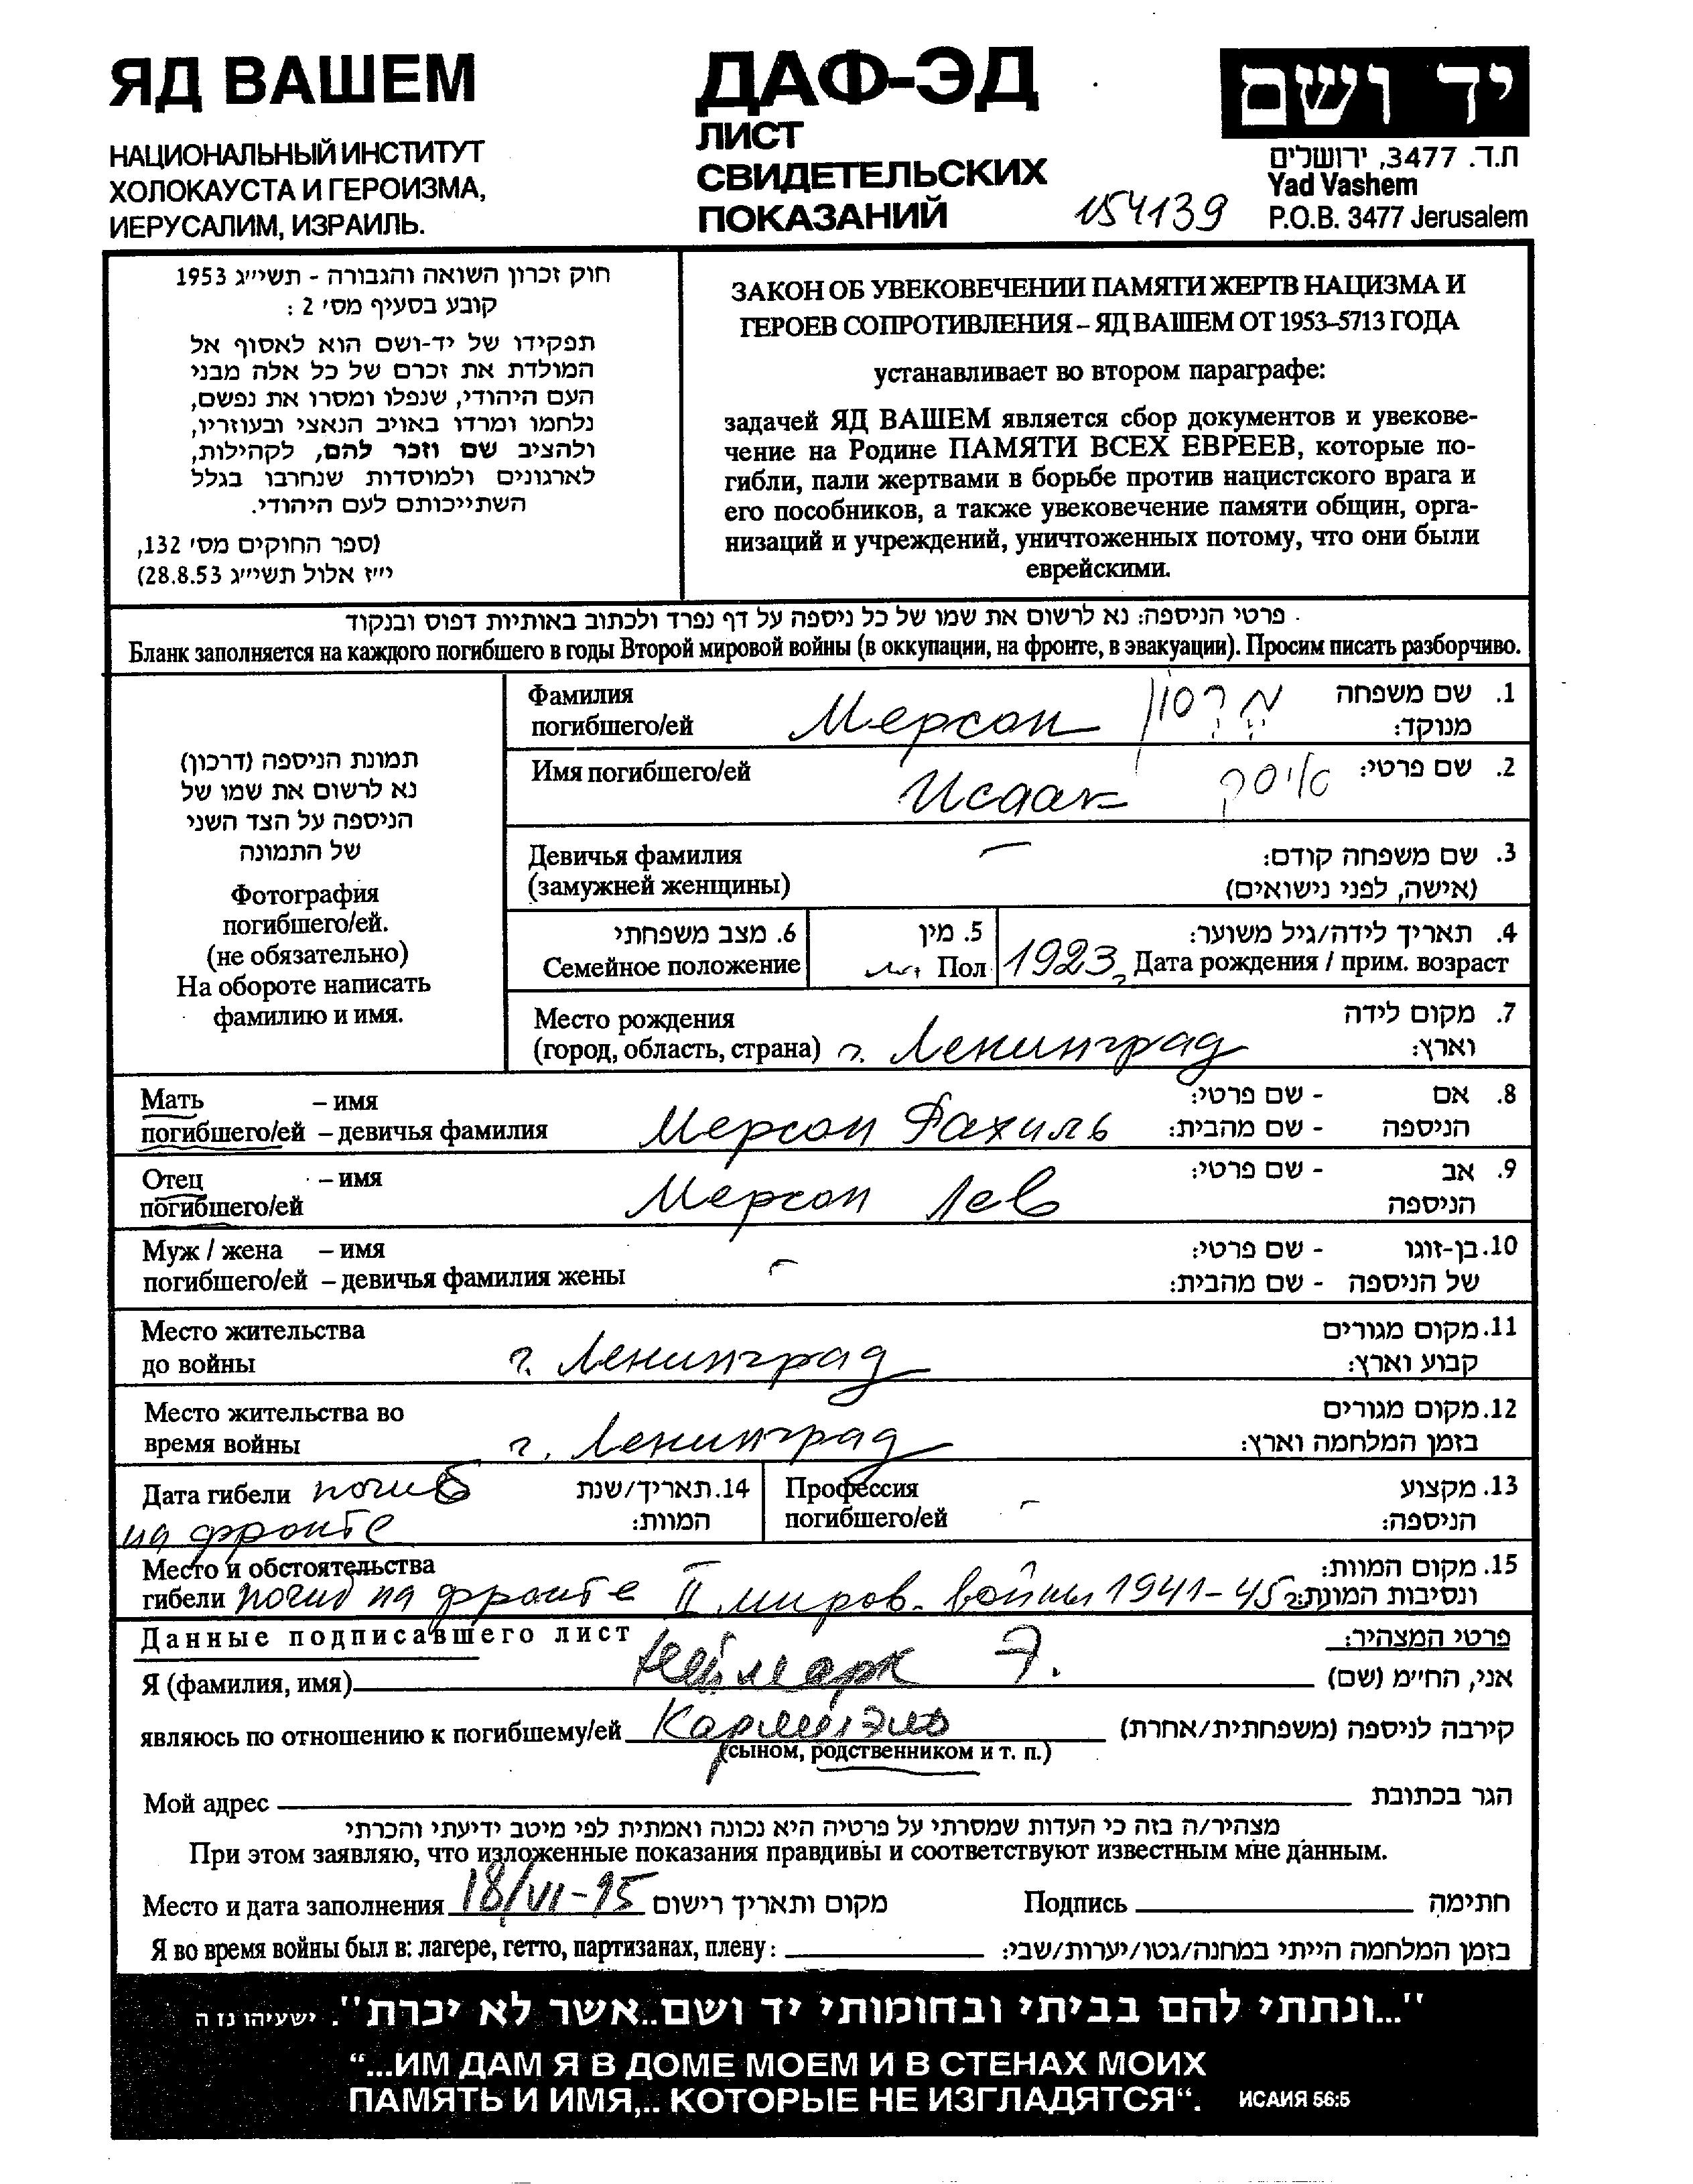 ЯД ВАШЕМ
НАЦИОНАЛЬНЫЙ ИНСТИТУТ
ХОЛОКАУСТА И ГЕРОИЗМА,
ИЕРУСАЛИМ, ИЗРАИЛЬ.
ДАФ-ЭД
ЛИСТ
СВИДЕТЕЛЬСКИХ
ПОКАЗАНИЙ
154139
יד ושם
ת.ד. 3477, ירושלים
Yad Vashem
P.O.B. 3477 Jerusalem
חוק זכרון השואה והגבורה - תשי״ג 1953
קובע בסעיף מס׳ 2 :
תפקידו של יד-ושם הוא לאסוף אל
המולדת את זכרם של כל אלה מבני
העם היהודי, שנפלו ומסרו את נפשם,
נלחמו ומרדו באויב הנאצי ובעוזריו,
ולהציב שם וזכר להם, לקהילות,
לארגונים ולמוסדות שנחרבו בגלל
השתייכותם לעם היהודי.
(ספר החוקים מס׳ 132,
י״ז אלול תשי״ג 28.8.53)
ЗАКОН ОБ УВЕКОВЕЧЕНИИ ПАМЯТИ ЖЕРТВ НАЦИЗМА И
ГЕРОЕВ СОПРОТИВЛЕНИЯ – ЯД ВАШЕМ ОТ 1953–5713 ГОДА
устанавливает во втором параграфе:
задачей ЯД ВАШЕМ является сбор документов и увекове-
чение на Родине ПАМЯТИ ВСЕХ ЕВРЕЕВ, которые по-
гибли, пали жертвами в борьбе против нацистского врага и
его пособников, а также увековечение памяти общин, орга-
низаций и учреждений, уничтоженных потому, что они были
еврейскими.
פרטי הניספה: נא לרשום את שמו של כל ניספה על דף נפרד ולכתוב באותיות דפוס ובנקוד
Бланк заполняется на каждого погибшего в годы Второй мировой войны (в оккупации, на фронте, в эвакуации). Просим писать разборчиво.
תמונת הניספה (דרכון)
נא לרשום את שמו של
הניספה על הצד השני
של התמונה
Фотография
погибшего/ей.
(не обязательно)
На обороте написать
фамилию и имя.
Фамилия
погибшего/ей Мерсон מֶרְסוֹן
1. שם משפחה
מנוקד:
Имя погибшего/ей Исаак איסק 2. שם פרטי:
Девичья фамилия – 3. שם משפחה קודם:
(замужней женщины) (אישה, לפני נישואים)
6. מצב משפחתי
Семейное положение
5. מין
м. Пол
4. תאריך לידה/גיל משוער:
1923 Дата рождения / прим. возраст
Место рождения 7. מקום לידה
(город, область, страна) г. Ленинград וארץ:
Мать – имя 8. אם - שם פרטי:
погибшего/ей – девичья фамилия Мерсон Рахиль הניספה - שם מהבית:
Отец – имя 9. אב - שם פרטי:
погибшего/ей Мерсон Лев הניספה
Муж / жена – имя – 10. בן-זוגו - שם פרטי:
погибшего/ей – девичья фамилия жены של הניספה - שם מהבית:
Место жительства 11. מקום מגורים
до войны г. Ленинград קבוע וארץ:
Место жительства во 12. מקום מגורים
время войны г. Ленинград בזמן המלחמה וארץ:
Дата гибели погиб 14. תאריך/שנת
на фронте המוות:
Профессия – 13. מקצוע
погибшего/ей הניספה:
Место и обстоятельства 15. מקום המוות:
гибели погиб на фронте II миров. войны 1941-45г ונסיבות המוות:
Данные подписавшего лист פרטי המצהיר:
Я (фамилия, имя) Э. אני, החי״מ (שם)
являюсь по отношению к погибшему/ей קירבה לניספה (משפחתית/אחרת)
(сыном, родственником и т. п.)
Мой адрес הגר בכתובת
מצהיר/ה בזה כי העדות שמסרתי על פרטיה היא נכונה ואמתית לפי מיטב ידיעתי והכרתי
При этом заявляю, что изложенные показания правдивы и соответствуют известным мне данным.
Место и дата заполнения 18/VI-95 מקום ותאריך רישום Подпись חתימה
Я во время войны был в: лагере, гетто, партизанах, плену: בזמן המלחמה הייתי במחנה/גטו/יערות/שבי:
"...ונתתי להם בביתי ובחומותי יד ושם..אשר לא יכרת". ישעיהו נז ה
“...ИМ ДАМ Я В ДОМЕ МОЕМ И В СТЕНАХ МОИХ
ПАМЯТЬ И ИМЯ,.. КОТОРЫЕ НЕ ИЗГЛАДЯТСЯ“. ИСАИЯ 56:5